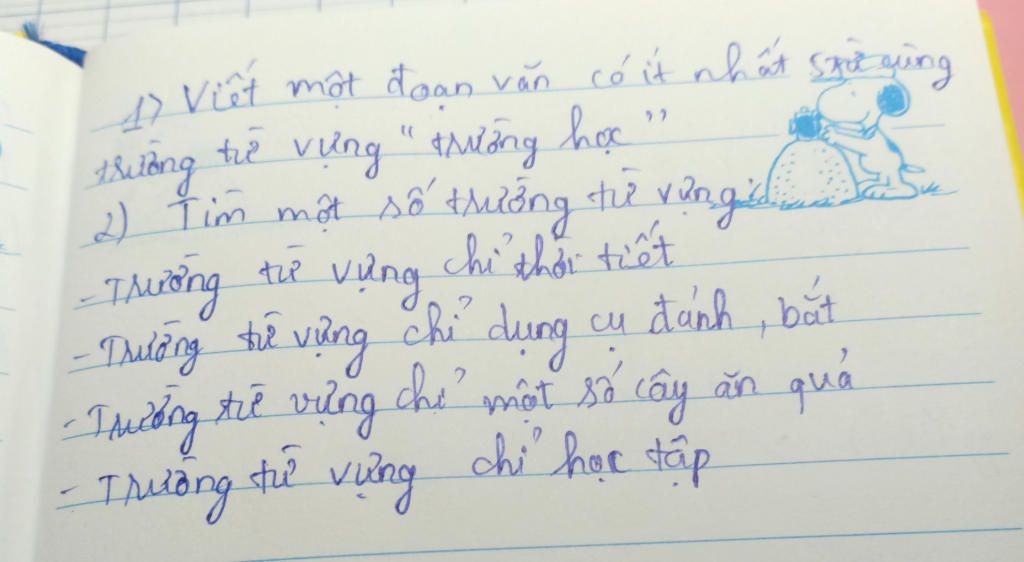 1) Viết một đoạn văn có ít nhất 5 từ cùng
trường từ vựng "trường học"
2) Tìm một số trường từ vựng:
- Trường từ vựng chỉ thời tiết
- Trường từ vựng chỉ dụng cụ đánh, bắt
- Trường từ vựng chỉ một số cây ăn quả
- Trường từ vựng chỉ học tập